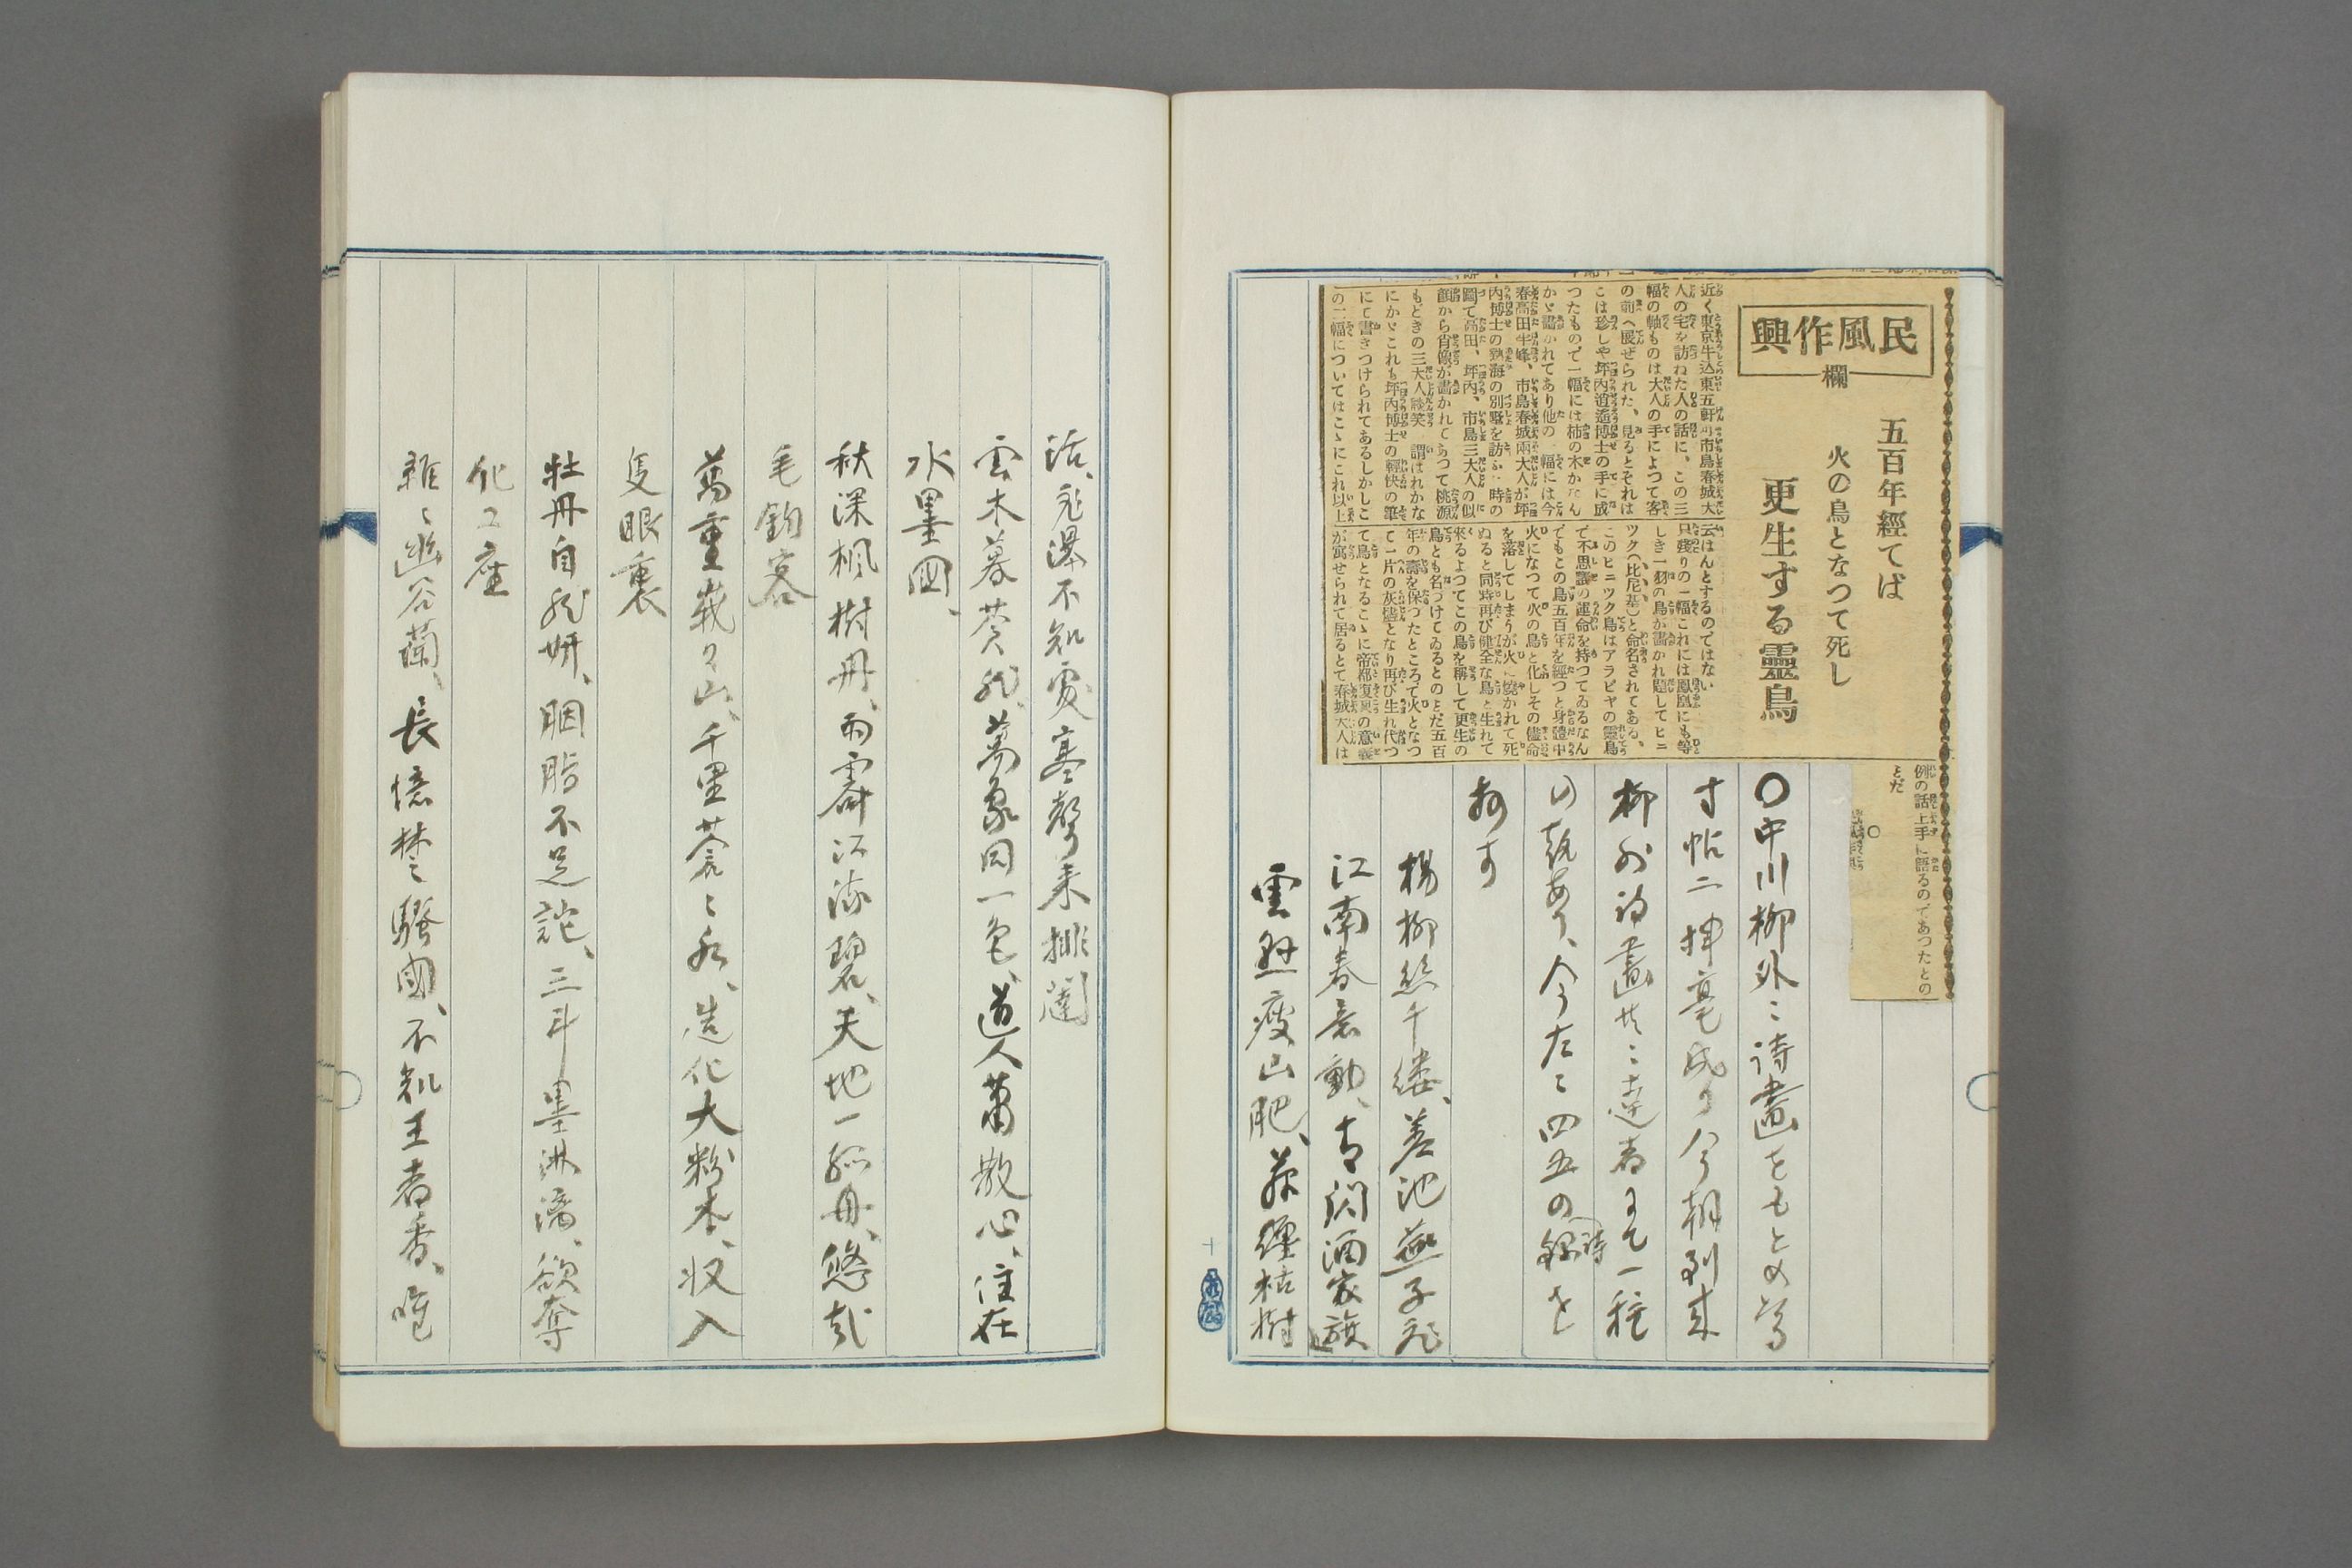 民風作興
欄
五百年經てば
火の鳥となつて死し
更生する靈鳥
近く東京牛込東五軒町市島春城大
人の宅を訪ねた人の話に、この三
幅の軸ものは大人の手によつて客
の前へ展ぜられた、見るとそれは
こは珍しや坪内逍遙博士の手に成
つたもので一幅には柿の木かなん
かゞ畫かれてあり他の一幅には今
春高田半峰、市島春城兩大人が坪
内博士の熱海の別墅を訪ふた時の
圖で高田、坪内、市島三大人の似
顔から肖像が畫かれてあつて桃源
もどきの三大人談笑 謂はれかな
にかゞこれも坪内博士の輕快の筆
にて書きつけられてあるしかしこ
の二幅についてはこゝにこれ以上
云はんとするのではない
只殘りの一幅これには鳳凰にも等
しき一羽の鳥が畫かれ題してヒニ
ツク(比尼基)と命名されてある、
このヒニツク鳥はアラビヤの靈鳥
で不思議の運命を持つてゐるなん
でもこの鳥五百年を經つと身體中
火になつて火の鳥と化しその儘命
を落してしまうが火に燒かれて死
ぬると同時再び健全な鳥と生れて
來るよつてこの鳥を稱して更生の
鳥とも名づけてゐるとのことだ五百
年の壽を保つたところで火となつ
て一片の灰燼となり再び生れ代つ
て鳥となるこゝに帝都復興の意義
が寓せられて居るとて春城大人は
例の話上手に語るのであつたとの
ことだ
〇中川柳外ニ詩畫をもとめ
寸帖ニ揮毫成り今朝到来
柳外詩畫共ニ達者にて一種
の趣あり、今左ニ四五の詩錄を
抄す
楊柳絲千縷、差池燕子飛
江南春意動、青閃酒家旗
雲烈瘦山肥、藤纏枯樹
活、飛瀑不知處、寒聲来排闥
雲木暮蒼然、萬象同一色、道人蕭散心、住在
水墨圖、
秋深楓樹丹、雨霽江流碧、天地一孤舟、悠哉
毛鈎客
萬重峩々山、千里蒼々水、造化大粉本、收入
隻眼裏
牡丹自然妍、胭脂不足誇、三斗墨淋漓、欲奪
化工座
雜々幽谷蘭、長憶楚騷國、不知王者香、唯